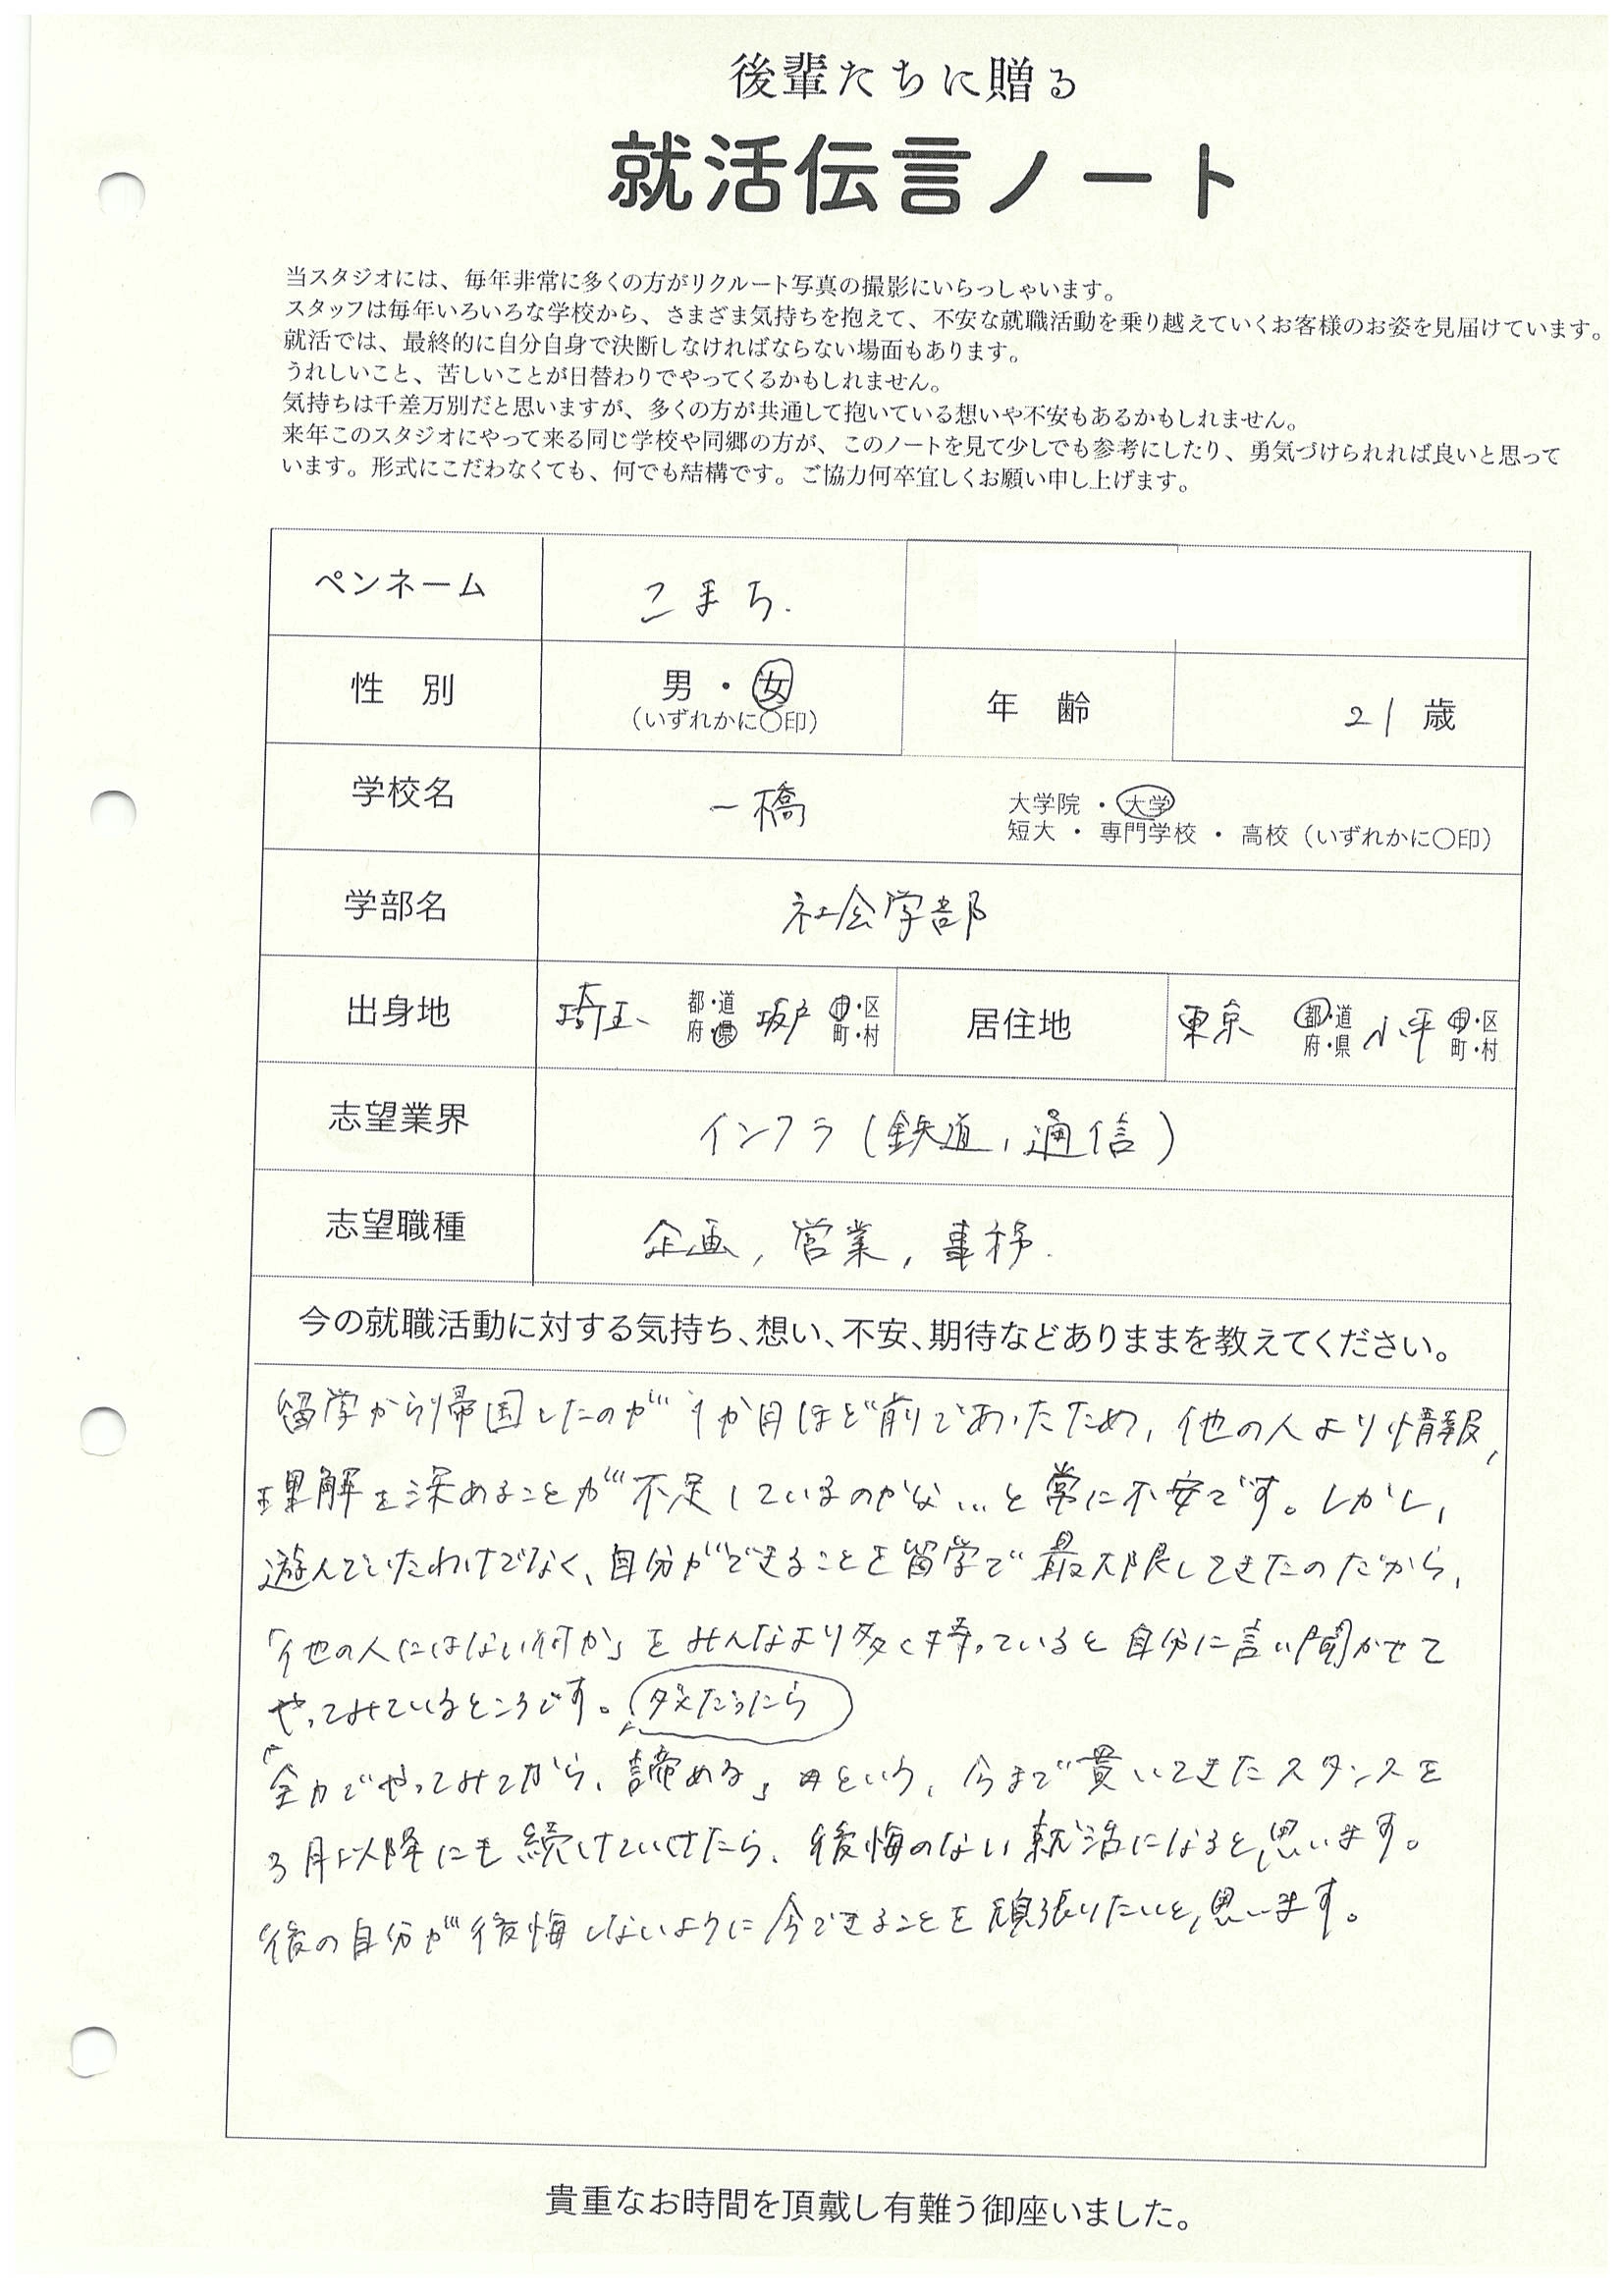 後輩たちに贈る
就活伝言ノート
当スタジオには、毎年非常に多くの方がリクルート写真の撮影にいらっしゃいます。
スタッフは毎年いろいろな学校から、さまざま気持ちを抱えて、不安な就職活動を乗り越えていくお客様のお姿を見届けています。
就活では、最終的に自分自身で決断しなければならない場面もあります。
うれしいこと、苦しいことが日替わりでやってくるかもしれません。
気持ちは千差万別だと思いますが、多くの方が共通して抱いている想いや不安もあるかもしれません。
来年このスタジオにやって来る同じ学校や同郷の方が、このノートを見て少しでも参考にしたり、勇気づけられれば良いと思って
います。形式にこだわなくても、何でも結構です。ご協力何卒宜しくお願い申し上げます。
ペンネーム こまち.
性 別 男・女 (いずれかに〇印) 年 齢 21 歳
学校名 一橋 大学院・大学
短大・専門学校・高校(いずれかに〇印)
学部名 社会学部
出身地 埼玉 都・道 府・県 坂戸 市・区 町・村 居住地 東京 都・道 府・県 小平 市・区 町・村
志望業界 インフラ(鉄道,通信)
志望職種 企画,営業,事務.
今の就職活動に対する気持ち、想い、不安、期待などありままを教えてください。
留学から帰国したのが1か月ほど前であったため,他の人より情報,
理解を深めることが不足しているのかな…と常に不安です。しかし,
遊んでいたわけでなく、自分ができることを留学で最大限してきたのだから,
「他の人にはない何か」をみんなより多く持っていると自分に言い聞かせて
やってみているところです。ダメだったら
「全力でやってみてから、諦める」という、今まで貫いてきたスタンスを
3月以降にも続けていけたら、後悔のない就活になると思います。
後の自分が後悔しないように今できることを頑張りたいと思います。
貴重なお時間を頂戴し有難う御座いました。